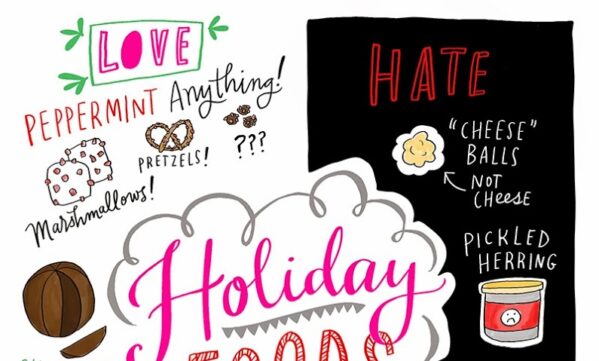 LOVE
PEPPERMINT Anything!
PRETZELS!
???
Marshmallows!
HATE
"CHEESE"
BALLS
NOT
CHEESE
PICKLED
HERRING
Holiday
FOODS